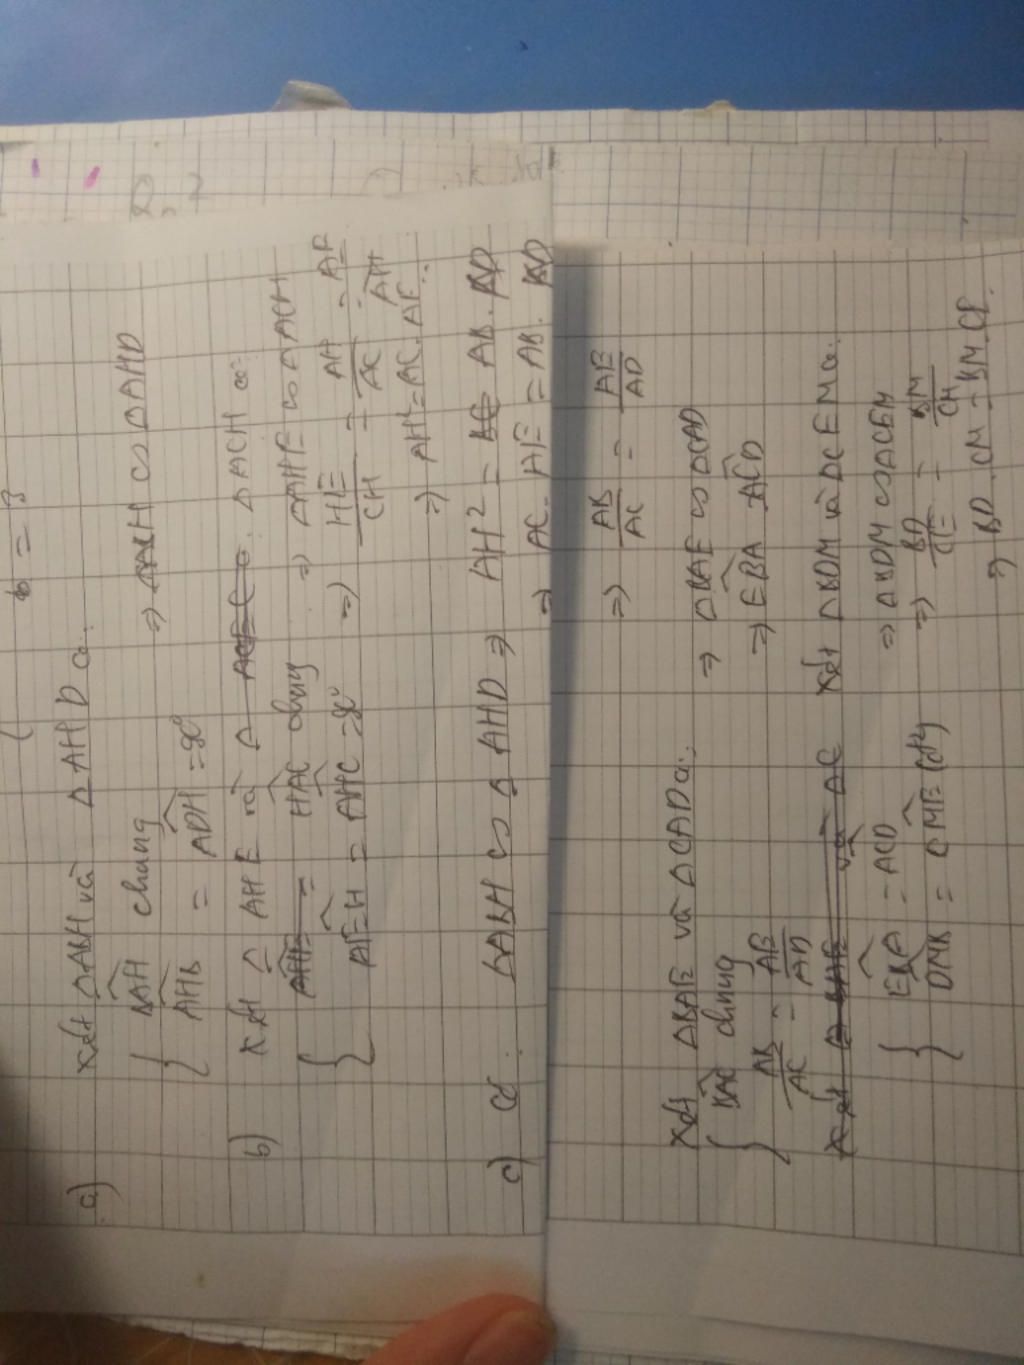 b = 3
a) Xét ΔABH và ΔAHD có:
BAH chung
AHB = ADH = 90°
⇒ ΔABH ∽ ΔAHD
b) Xét Δ AHE và Δ ACH có:
HAC chung ⇒ ΔAHE ∽ ΔACH
AEH = AHC = 90° ⇒ HE/CH = AH/AC = AE/AH
⇒ AH² = AC. AE.
c) Có. ΔABH ∽ Δ AHD ⇒ AH² = AB. AD
⇒ AC. AE = AB. AD
⇒ AB/AC = AE/AD
Xét ΔBAE và ΔCAD có:
BAC chung ⇒ ΔBAE ∽ ΔCAD
AB/AC = AE/AD ⇒ EBA = ACD
Xét ΔBDM và ΔCEM có:
EBA = ACD ⇒ ΔBDM ∽ ΔCEM
DMB = CME (đđ) ⇒ BD/CE = BM/CM
⇒ BD. CM = BM. CE.